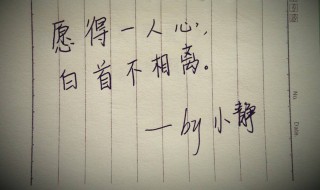 愿得一人心,
白首不相离。
—by 小静
No
Date